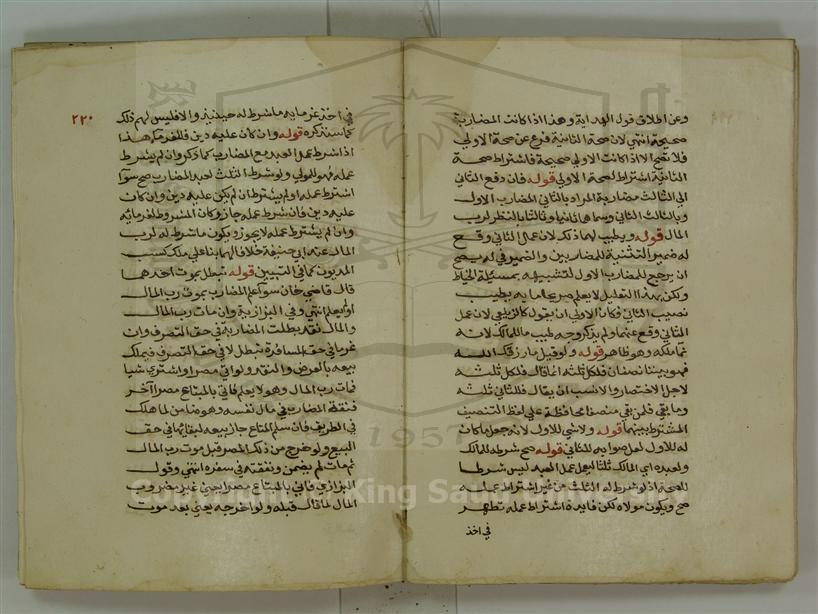 وعن اطلاق قول الهداية وهذا اذا كانت المضاربة
صحيحة انتهي لان صحة الثانية فرع عن صحة الاولي
فلا تصح الا اذا كانت الاولي صحيحة فاشتراط صحة
الثانية اشتراط لصحة الاولي قوله فان دفع الثاني
الي الثالث مضاربة المراد بالثاني المضارب الاول
وبالثالث الثاني وسماهما ثانيا وثالثا بالنظر لرب
المال قوله ويطيب لهما ذلك لان عمل الثاني وقع
له ضمير التثنية للمضاربين والضمير في له يصح
ان يرجع للمضارب الاول لتشبيهه بمسيلة الخياط
ولكن بهذا التعليل لا يعلم صريحا ما به يطيب
نصيب الثاني فكان الاولي ان يقول كالزيلعي لان عمل
الثاني وقع عنهما ولم يذكر وجه طيب ما للمالك لانه
نما ملكه وهو ظاهر قوله ولو قيل ما رزقك الله
فهو بيننا نصفان فلكل ثلثه اقال فلكل ثلثه
لاجل الاختصار والانسب ان يقال فللثاني ثلثه
وما بقي فلمن بقي منصفا محافظة علي لفظ التنصيف
المشترط بينهما قوله ولا شي للاول لانه جعل ما كان
له للاول لعل صوابه للثاني قوله صح شرطه للمالك
ولعبده اي المالك ثلثا ليعمل عمل العبد ليس شرطا
للصحة اذ لو شرط له الثلث من غير اشتراط عمله
صح ويكون مولاه لكن فايدة اشتراط عمله تظهر
في اخذ
٢٢٠
في اخذ غرمايه ما شرط له حينيذ والا فليس لهم ذلك
كما سنذكره قوله وان كان عليه دين فللغرماء هذا
اذا شرط عمل العبد مع المضارب كما ذكر وان لم يشرط
عمله فهو للمولي ولو شرط الثلث لعبد المضارب صح سوآ
اشترط عمله او لم يشترط ان لم يكن عليه دين وان كان
عليه دين فان شرط عمله جاز وكان المشروط لغرمائه
وان لم يشترط عمله لا يجوز ويكون ما شرط له لرب
المال عند ابي حنيفة خلافا لهما بناء علي ملك كسب
المديون كما في التبيين قوله تبطل بموت احدهما
قال قاضي خان سوآ علم المضارب بموت رب المال
او لم يعلم انتهي وفي البزازية وان مات رب المال
والمال نقد بطلت المضاربة في حق التصرف وان
عرضا في حق المسافرة تبطل لا في حق التصرف فيملك
بيعه بالعرض والنقد ولو اتي مصرا واشتري شيا
فمات رب المال وهو لا يعلم فاتي بالمتاع مصرا آخر
فنفقة المضارب في مال نفسه وهو ضامن لما هلك
في الطريق فان سلم المتاع جاز بيعه لبقائها في حق
البيع ولو خرج من ذلك المصر قبل موت رب المال
ثم مات لم يضمن ونفقته في سفره انتهي وقول
البزازي فاتي بالمتاع مصرا يعني غير مصر رب
المال لما قال قبله ولو اخرجه يعني بعد موت
1957
Copyright © King Saud University